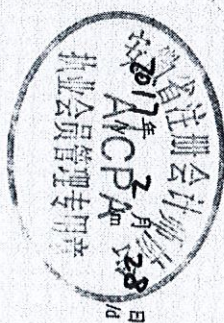 安徽省注册会计师协会
2017年 2月 28日
AHCPA
执业会员管理专用章
/d